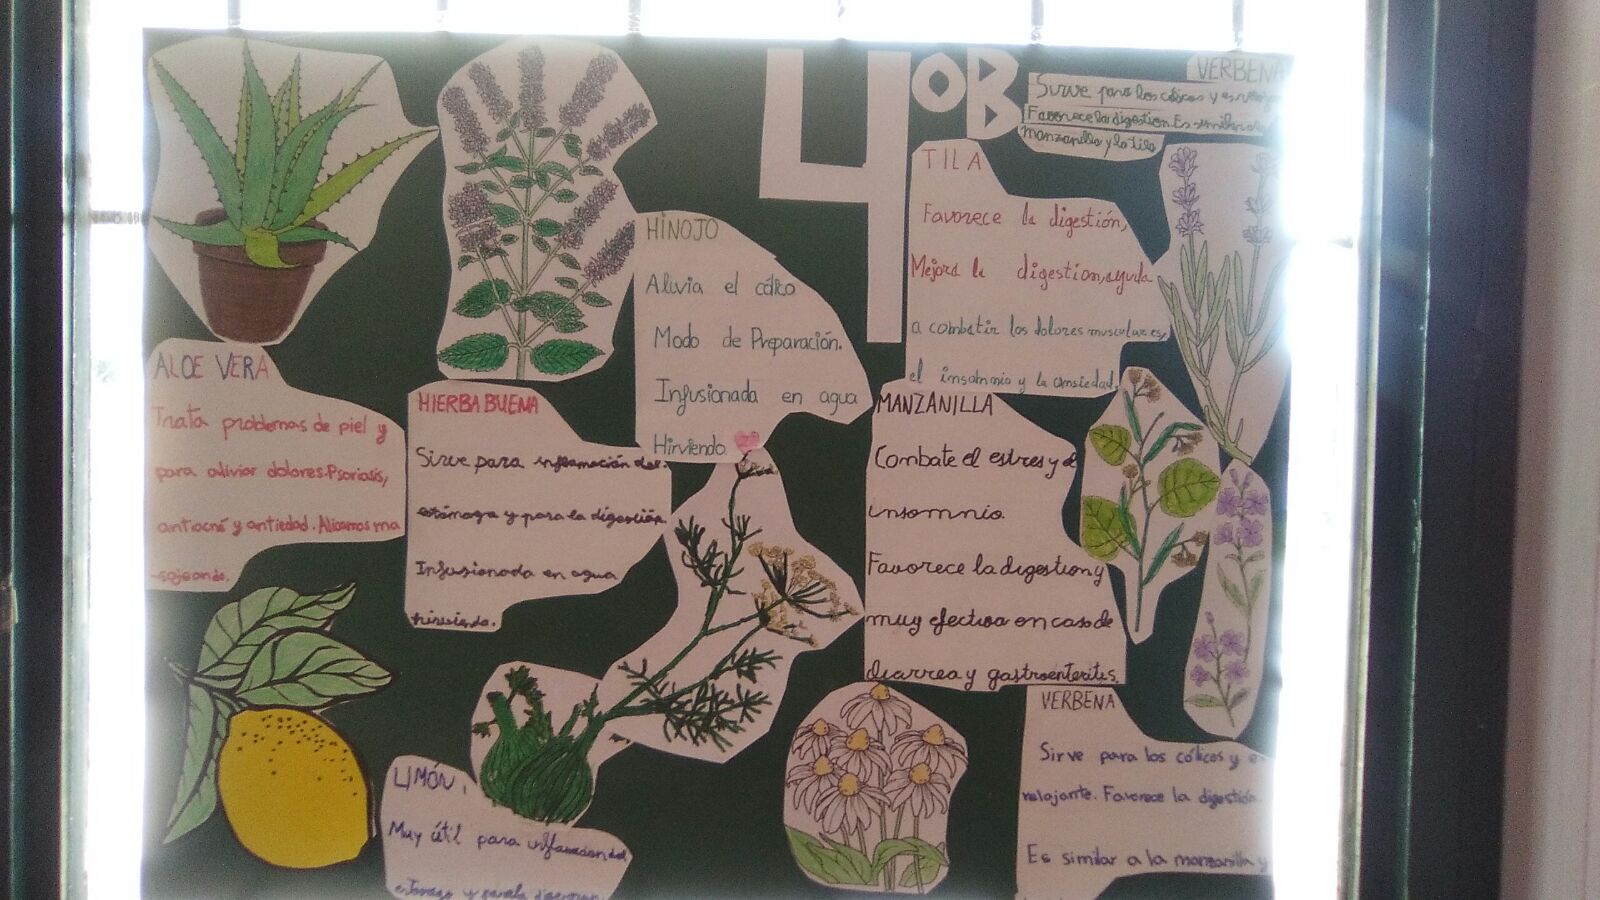 4ºB
VERBENA
Sirve para los cólicos y es
Favorece la digestion. Es similar a la
manzanilla y la tila
TILA
Favorece la digestión,
Mejora la digestion, ayuda
a combatir los dolores musculares,
el insomnio y la ansiedad.
HINOJO
Alivia el cólico
Modo de Preparación.
Infusionada en agua
Hirviendo.
ALOE VERA
Trata problemas de piel y
para aliviar dolores. Psoriasis,
antiacné y antiedad. Alicamos ma
-sajeando.
HIERBABUENA
Sirve para inflamación del
estómago y para la digestión.
Infusionada en agua
hirviendo.
MANZANILLA
Combate el estres y el
insomnio.
Favorece la digestion y
muy efectiva en caso de
diarrea y gastroenteritis.
VERBENA
Sirve para los cólicos y es
relajante. Favorece la digestión.
Es similar a la manzanilla y
LIMÓN,
Muy útil para inflamación del
estómago y para la digestion